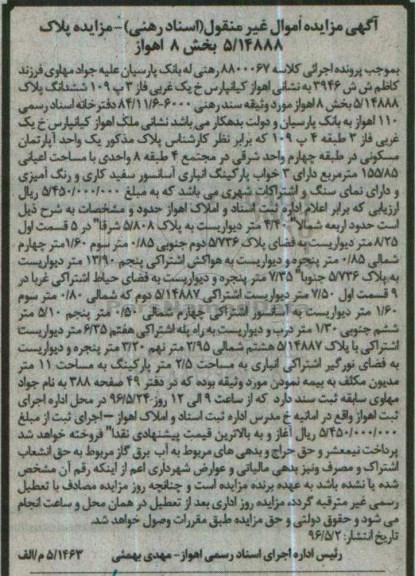 آگهی مزایده اموال غیر منقول(اسناد رهنی)-مزایده پلاک
۵/۱۴۸۸۸ بخش ۸ اهواز
بموجب پرونده اجرائی کلاسه ۸۸۰۰۰۶۷ رهنی له بانک پارسیان علیه جواد مهاوی فرزند
کاظم ش ش ۳۹۴۶ به نشانی اهواز کیانپارس خ یک غربی فاز ۳ پ ۱۰۹ ششدانگ پلاک
۵/۱۴۸۸۸ بخش ۸ اهواز مورد وثیقه سند رهنی ۶۰۰۰-۸۴/۱۱/۶ دفترخانه اسناد رسمی
۱۱۰ اهواز به بانک پارسیان و دولت بدهکار می باشد نشانی ملک اهواز کیانپارس خ یک
غربی فاز ۳ طبقه ۴ پ ۱۰۹ که برابر نظر کارشناس پلاک مذکور یک واحد آپارتمان
مسکونی در طبقه چهارم واحد شرقی در مجتمع ۴ طبقه ۸ واحدی با مساحت اعیانی
۱۵۵/۸۵ مترمربع دارای ۳ خواب پارکینگ انباری آسانسور سفید کاری و رنگ آمیزی
و دارای نمای سنگ و اشتراکات شهری می باشد که به مبلغ ۵/۴۵۰/۰۰۰/۰۰۰ ریال
ارزیابی که برابر اعلام اداره ثبت اسناد و املاک اهواز حدود و مشخصات به شرح ذیل
است حدود اربعه شمالاً ۴/۴۰ متر دیواریست به پلاک ۵/۸۰۸ شرقاً در ۵ قسمت اول
۸/۲۵ متر دیواریست به فضای پلاک ۵/۷۳۶ دوم جنوبی ۰/۸۵ متر سوم ۱/۶۰متر چهارم
شمالی ۰/۸۵ متر پنجره و دیواریست به هواکش اشتراکی پنجم ۱۳/۹۰ متر دیواریست
به پلاک ۵/۷۳۶ جنوباً ۷/۳۵ متر پنجره و دیواریست به فضای حیاط اشتراکی غربا در
۹ قسمت اول ۷/۵۰ متر دیواریست اشتراکی ۵/۱۴۸۸۷ دوم که شمالی ۰/۸۰ متر سوم
۱/۶۰ متر دیواریست به آسانسور اشتراکی چهارم شمالی ۰/۵۰ متر پنجم ۵/۱۰ متر
ششم جنوبی ۱/۳۰ متر درب و دیواریست به راه پله اشتراکی هفتم ۶/۳۵ متر دیواریست
اشتراکی با پلاک ۵/۱۴۸۸۷ هشتم شمالی ۲/۹۵ متر نهم ۳/۲۰ متر پنجره و دیواریست
به فضای نورگیر اشتراکی انباری به مساحت ۲/۵ متر پارکینگ به مساحت ۱۱ متر
مدیون مکلف به بیمه نمودن مورد وثیقه بوده که در دفتر ۴۹ صفحه ۳۸۸ به نام جواد
مهاوی سابقه ثبت سند دارد که از ساعت ۹ الی ۱۲ روز ۹۶/۵/۲۴ در محل اداره اجرای
ثبت اهواز واقع در امانیه خ مدرس اداره ثبت اسناد و املاک اهواز -اجرای ثبت از مبلغ
۵/۴۵۰/۰۰۰/۰۰۰ ریال آغاز و به بالاترین قیمت پیشنهادی نقداً فروخته خواهد شد
پرداخت نیمعشر و حق حراج و بدهی های مربوط به آب برق گاز مربوط به حق انشعاب
اشتراک و مصرف ونیز بدهی مالیاتی و عوارض شهرداری اعم از اینکه رقم آن مشخص
شده یا نشده باشد به عهده برنده مزایده است و چنانچه روز مزایده مصادف با تعطیل
رسمی غیر مترقبه گردد مزایده روز اداری بعد از تعطیل در همان محل و ساعت انجام
می شود و حقوق دولتی و حق مزایده طبق مقررات وصول خواهد شد.
تاریخ انتشار: ۹۶/۵/۲
رئیس اداره اجرای اسناد رسمی اهواز- مهدی بهمئی ۵/۱۴۶۳ م/الف